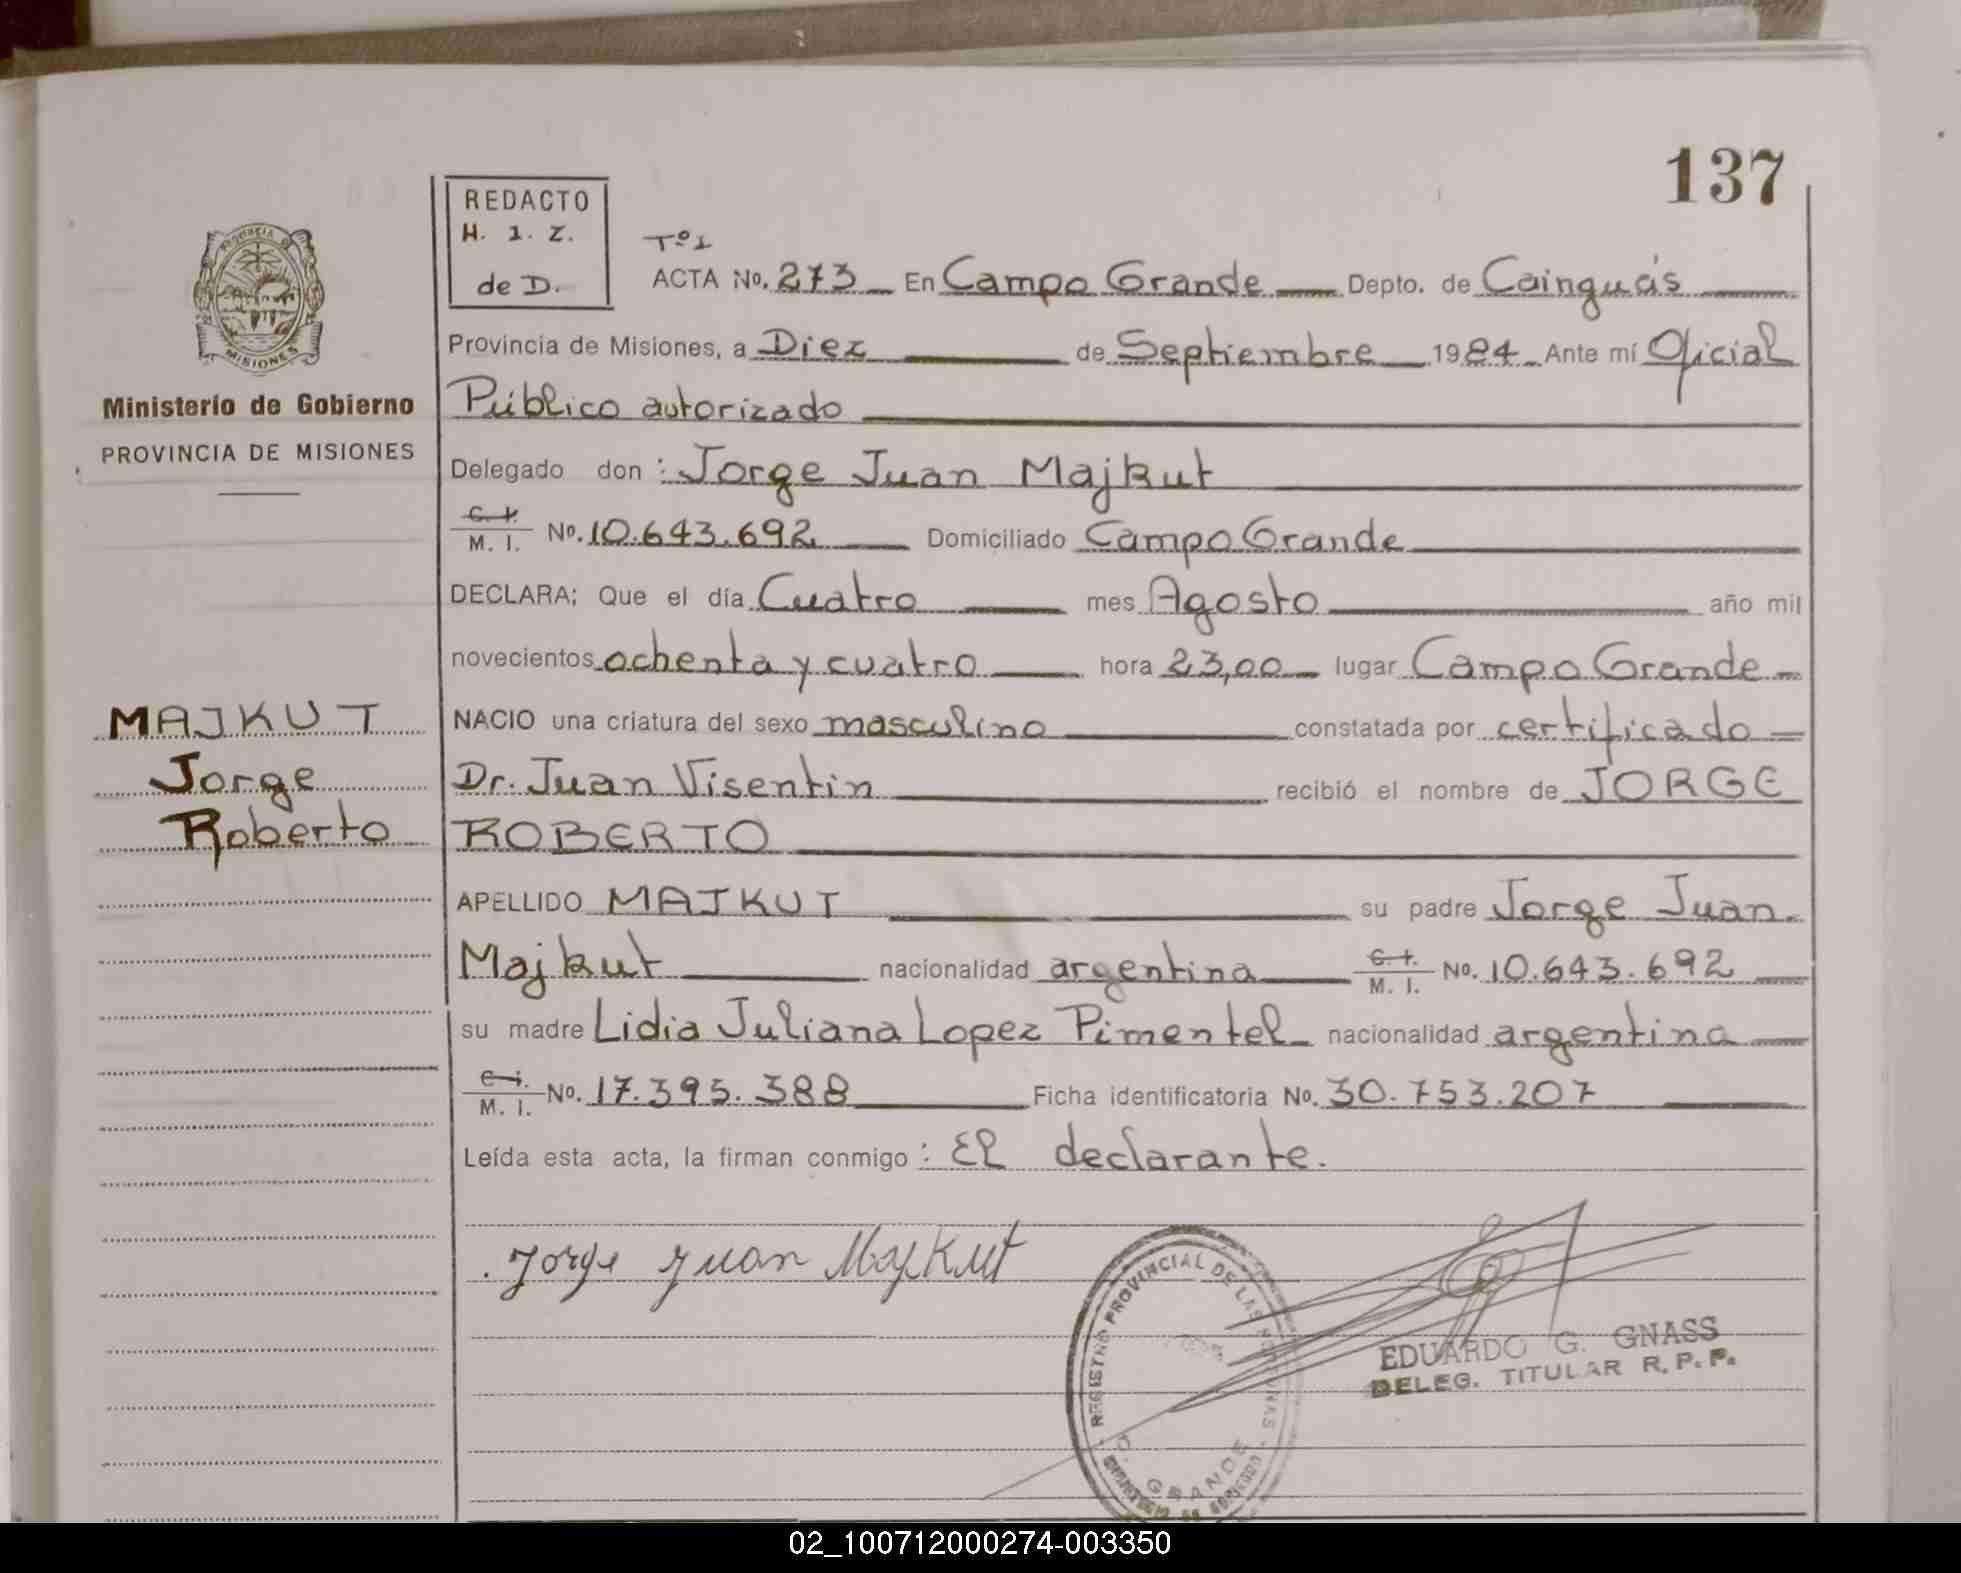 137
REDACTO
H. I. Z.
de D.
Tº1
ACTA No. 273 En Campo Grande Depto. de Cainguás
Provincia de Misiones, a Diez de Septiembre 1984 Ante mí Oficial
Público autorizado
PROVINCIA DE
MISIONES
Ministerio de Gobierno
PROVINCIA DE MISIONES
Delegado don: Jorge Juan Majkut
C. I.
M. I. No. 10.643.692 Domiciliado Campo Grande
DECLARA; Que el día Cuatro mes Agosto año mil
novecientos ochenta y cuatro hora 23,00 lugar Campo Grande
MAJKUT
Jorge
Roberto
NACIO una criatura del sexo masculino constatada por certificado
Dr. Juan Visentin recibió el nombre de JORGE
ROBERTO
APELLIDO MAJKUT su padre Jorge Juan
Majkut nacionalidad argentina C. I. M. I. No. 10.643.692
su madre Lidia Juliana Lopez Pimentel nacionalidad argentina
C. I.
M. I. No. 17.395.388 Ficha identificatoria No. 30.753.207
Leída esta acta, la firman conmigo: El declarante.
Jorge Juan Majkut
REGISTRO PROVINCIAL DE LAS PERSONAS
C. GRANDE
EDUARDO G. GNASS
DELEG. TITULAR R. P. P.
02_100712000274-003350